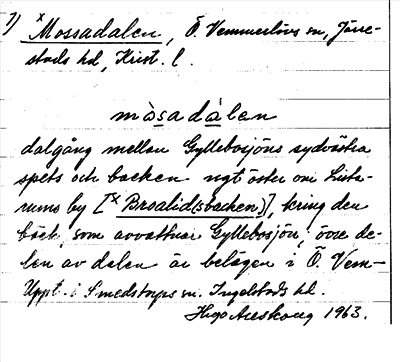 7) x Mossadalen, Ö. Vemmerlövs sn, Järre-
stads hd, Krist. l.
màsadàlen
dalgång mellan Gyllebosjöns sydvästra
spets och backen ngt öster om Lista-
rums by [x Broalid(sbacken)], kring den
bäck, som avvattnar Gyllebosjön, övre de-
len av dalen är belägen i Ö. Vem-
Uppt. i Smedstorps sn. Ingelstads hd.
Hugo Areskoug 1963.